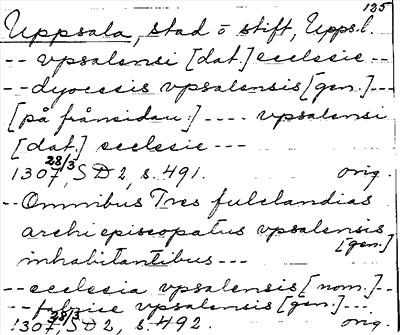 125
Uppsala, stad o stift, Upps.l.
-- vpsalensi [dat.] ecclesie --
-- dyocesis vpsalensis [gen.] --
[på frånsidan:] ---- vpsalensi
[dat.] ecclesie ---
1307 28/3, SD 2, s. 491. orig.
-- Omnibus Tres fulclandias
archiepiscopatus vpsalensis [gen.]
inhabitantibus ---
-- ecclesia vpsalensis [nom.] --
-- fabrice vpsalensis [gen.] ---
1307 28/3, SD 2, s. 492. orig.